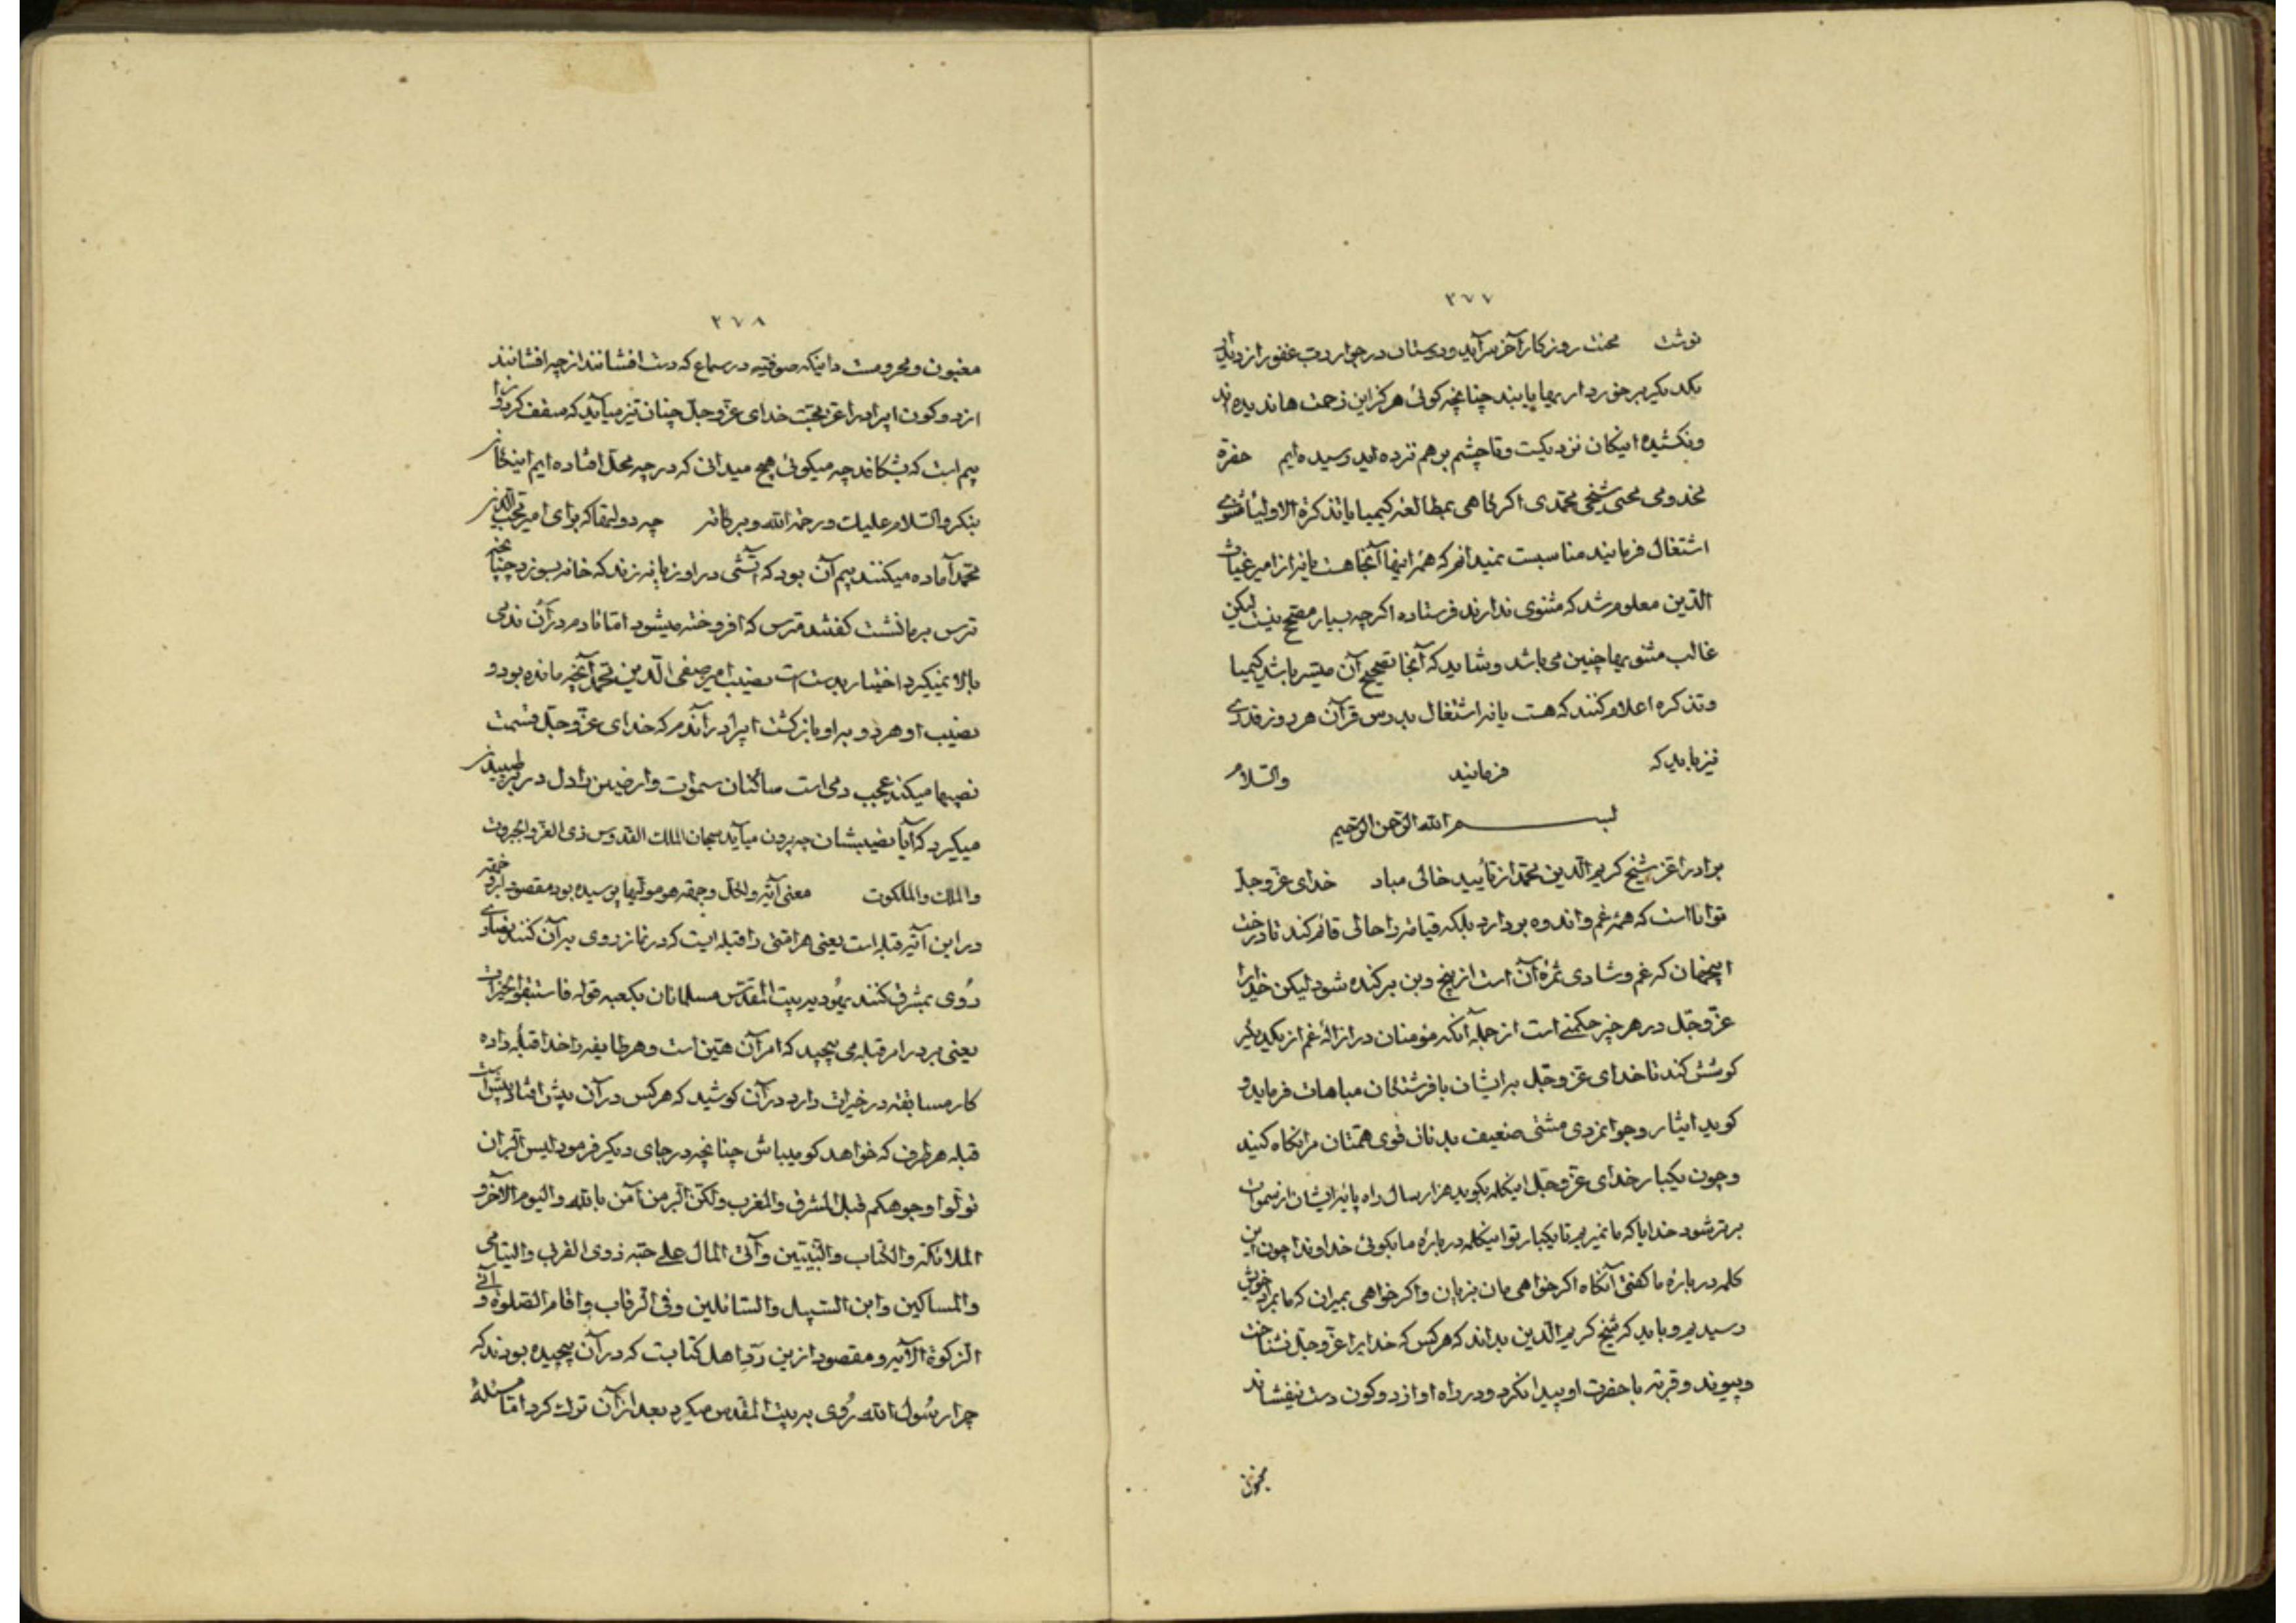 ۲۷۷
نوشت محنت روزکار آخر سرآید و دوستان در جوار رب غفور از دیدار
یکدیگر برخورداریها یابند چنانچه کوئی هرکز این زحمت ها ندیده اند
ونکشیده اینکان نزدیکست وتا چشم برهم زده اید رسیده ایم حضرة
مخدومی محبی شیخی محمدی اکر کاهی بمطالعه کیمیا یا تذکرة الاولیا مثنوی
اشتغال فرمایند مناسبست نمیدانم که همه اینها آنجا هست یا نه از امیر غیاث
الدین معلوم شد که مثنوی ندارند فرستاده اکرچه بسیار مصحح نیست لیکن
غالب مثنویها چنین می باشد وشاید که آنجا تصحیح آن میسر باشد کیمیا
وتذکره اعلام کنند که هست یا نه اشتغال بدرس قرآن هر روز قدری
نیز باید که فرمایند والسلام
بسم الله الرحمن الرحیم
برادر اعز شیخ کریم الدین محمد از تأیید خالی مباد خدای عزوجل
توانا است که همه غم واندوه بردارد بلکه قیامت را حالی قائم کند تا درخت
اینجهان که غم وشادی ثمره آن است از بیخ وبن برکنده شود لیکن خدایرا
عزوجل در هر چیز حکمتی است از جمله آنکه مؤمنان در ازاله غم از یکدیکر
کوشش کند تا خدای عزوجل بر ایشان با فرشتکان مباهات فرماید و
کوید ایثار وجوانمردی مشتی ضعیف بدنان قوی همتان مرا نکاه کنید
وچون یکبار خدای عزوجل اینکلمه بکوید هزار سال راه پایه ایشان از سموات
برتر شود خدایا که ما نمیریم تا یکبار تو اینکلمه درباره ما بکوئی خداوندا چون این
کلمه درباره ما کفتی آنکاه اکر خواهی مان بزیان واکر خواهی بمیران که ما بمراد خویش
رسیدیم وباید که شیخ کریم الدین بداند که هرکس که خدایرا عزوجل نشناخت
وپیوند وقربة با حضرت او پیدا نکرد ودر راه او از دو کون دست نیفشاند
مغبون
۲۷۸
مغبون ومحرومست دانیکه صوفیه در سماع که دست افشانند از چه افشانند
از دو کون ای برادر اعز محبت خدای عزوجل چنان تیز میآید که سقف
بیم است که بشکافد چه میکوئی هیچ میدانی که در چه محل افتاده ایم
بنکر والسلام علیک ورحمة الله وبرکاته چه دولتها که برای امیر محب الدین
محمد آماده میکنند بیم آن بود که آتشی در او زبانه زند که خانه بسوزد چنانچه
ترس بر ما نشست کفتند مترس که افروخته میشود اما تا دم در آن ندمی
بالا نمیکیرد اختیار بدست است نصیب امیر صفی الدین محمد آنچه مانده بود و
نصیب او هر دو براو بازکشت ای برادر آندم که خدای عزوجل قسمت
نصیبها میکند عجب دمی است ساکنان سموات وارضین را دل در بر طپیدن
میکیرد که آیا نصیبشان چه برون میآید سبحان الملک القدوس ذی العز والجبروت
والملک والملکوت معنی آیه ولکل وجهة هو مولیها پرسیده بود مقصود از وجهه
در این آیه قبله است یعنی هر امتی را قبله ایست که در نماز روی بر آن کنند نصاری
روی بمشرق کنند یهود به بیت المقدس مسلمانان بکعبه قوله فاستبقوا الخیرات
یعنی بر در امر قبله می پیچید که امر آن هین است وهر طایفه را خدا قبله داده
کار مسابقه در خیرات دارد در آن کوشید که هرکس در آن پیش افتاد
قبله هر طرف که خواهد کو میباش چنانچه در جای دیکر فرمود لیس البر ان
تولوا وجوهکم قبل المشرق والمغرب ولکن البر من آمن بالله والیوم الآخر و
الملائکة والکتاب والنبیین وآتی المال علی حبه ذوی القربی والیتامی
والمساکین وابن السبیل والسائلین وفی الرقاب واقام الصلوة و آتی
الزکوة الآیه ومقصود ازین رد اهل کتابست که در آن پیچیده بودند که
چرا رسول الله روی به بیت المقدس میکرد بعد از آن ترک کرد اما مسئلهٔ